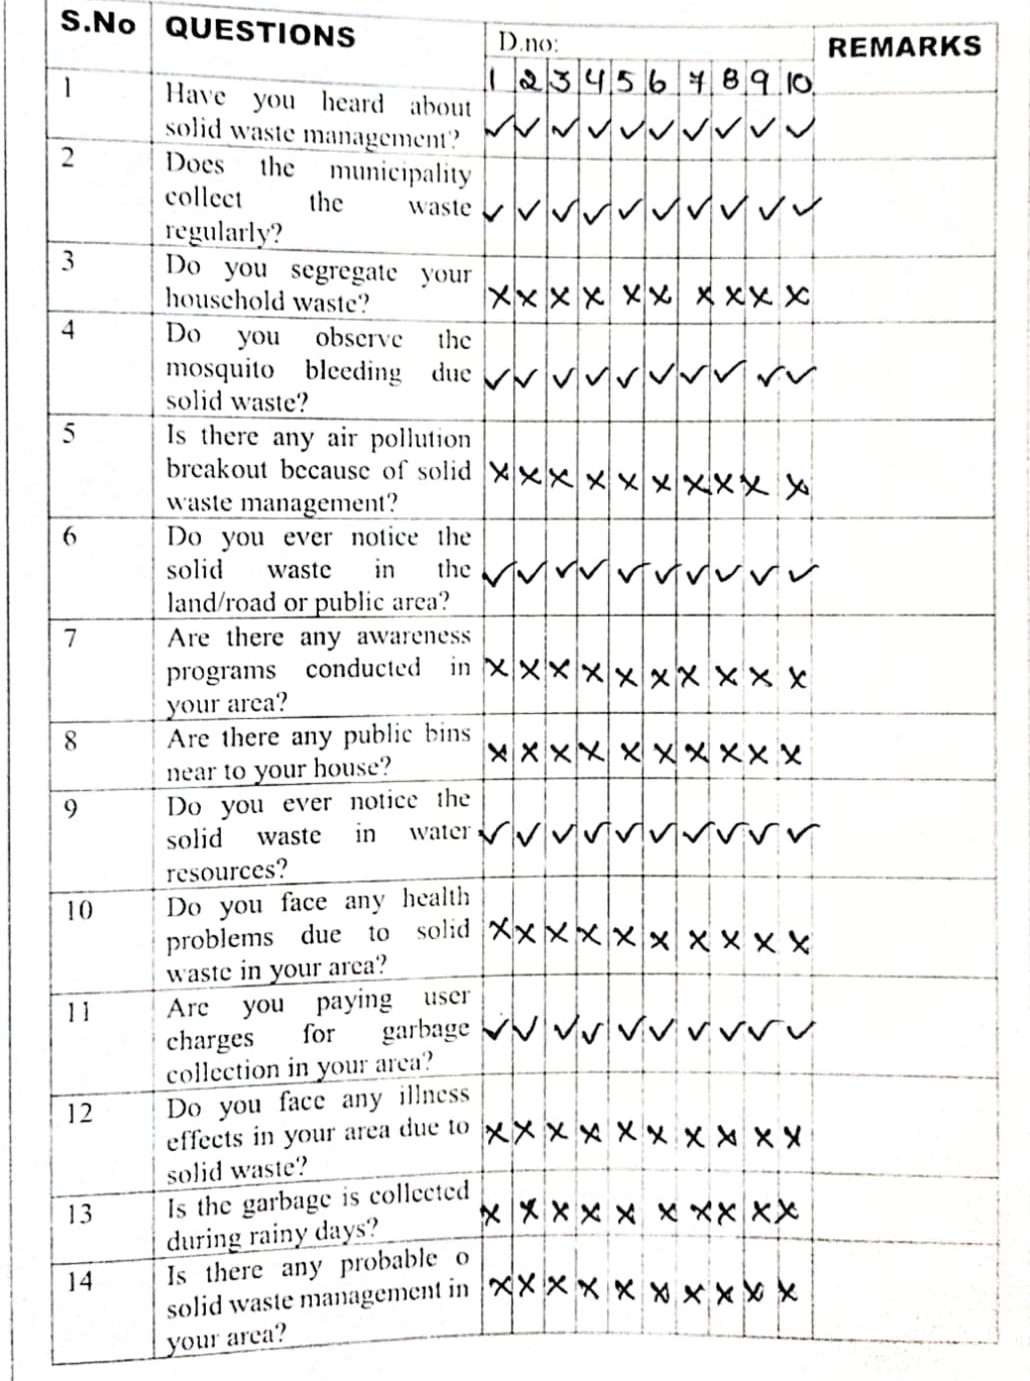 S.No QUESTIONS D.no: REMARKS
1 2 3 4 5 6 7 8 9 10
1 Have you heard about
solid waste management? ✓ ✓ ✓ ✓ ✓ ✓ ✓ ✓ ✓ ✓
2 Does the municipality
collect the waste ✓ ✓ ✓ ✓ ✓ ✓ ✓ ✓ ✓ ✓
regularly?
3 Do you segregate your
household waste? × × × × × × × × × ×
4 Do you observe the
mosquito bleeding due ✓ ✓ ✓ ✓ ✓ ✓ ✓ ✓ ✓ ✓
solid waste?
5 Is there any air pollution
breakout because of solid × × × × × × × × × ×
waste management?
6 Do you ever notice the
solid waste in the ✓ ✓ ✓ ✓ ✓ ✓ ✓ ✓ ✓ ✓
land/road or public area?
7 Are there any awareness
programs conducted in × × × × × × × × × ×
your area?
8 Are there any public bins
near to your house? × × × × × × × × × ×
9 Do you ever notice the
solid waste in water ✓ ✓ ✓ ✓ ✓ ✓ ✓ ✓ ✓ ✓
resources?
10 Do you face any health
problems due to solid × × × × × × × × × ×
waste in your area?
11 Are you paying user
charges for garbage ✓ ✓ ✓ ✓ ✓ ✓ ✓ ✓ ✓ ✓
collection in your area?
12 Do you face any illness
effects in your area due to × × × × × × × × × ×
solid waste?
13 Is the garbage is collected
during rainy days? × × × × × × × × × ×
14 Is there any probable o
solid waste management in × × × × × × × × × ×
your area?